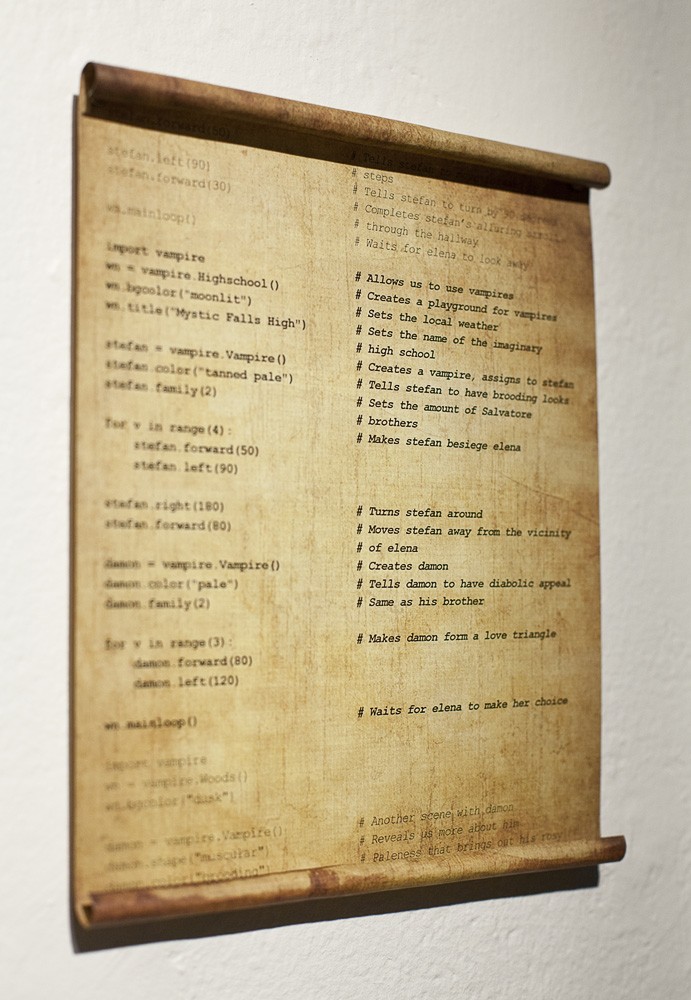 stefan.forward(50)
# Tells stefan
stefan.left(90) # steps
stefan.forward(30) # Tells stefan to turn by 90 degrees
# Completes stefan's alluring
wn.mainloop() # through the hallway
# Waits for elena to look away
import vampire # Allows us to use vampires
wn = vampire.Highschool() # Creates a playground for vampires
wn.bgcolor("moonlit") # Sets the local weather
wn.title("Mystic Falls High") # Sets the name of the imaginary
# high school
stefan = vampire.Vampire() # Creates a vampire, assigns to stefan
stefan.color("tanned pale") # Tells stefan to have brooding looks
stefan.family(2) # Sets the amount of Salvatore
# brothers
for v in range(4): # Makes stefan besiege elena
stefan.forward(50)
stefan.left(90)
stefan.right(180) # Turns stefan around
stefan.forward(80) # Moves stefan away from the vicinity
# of elena
damon = vampire.Vampire() # Creates damon
damon.color("pale") # Tells damon to have diabolic appeal
damon.family(2) # Same as his brother
for v in range(3): # Makes damon form a love triangle
damon.forward(80)
damon.left(120)
wn.mainloop() # Waits for elena to make her choice
import vampire
wn = vampire.Woods()
wn.bgcolor("dusk")
# Another scene with damon
damon = vampire.Vampire() # Reveals us more about him
damon.shape("muscular") # Paleness that brings out his rosy
("brooding")